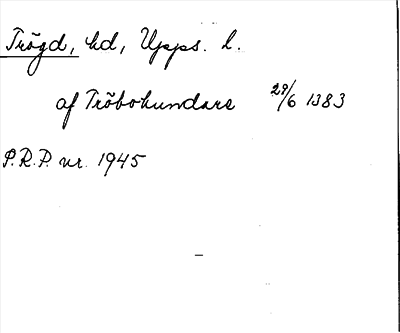 Trögd, hd, Upps. l.
af Tröbohundare 29/6 1383
P.R.P. nr. 1945